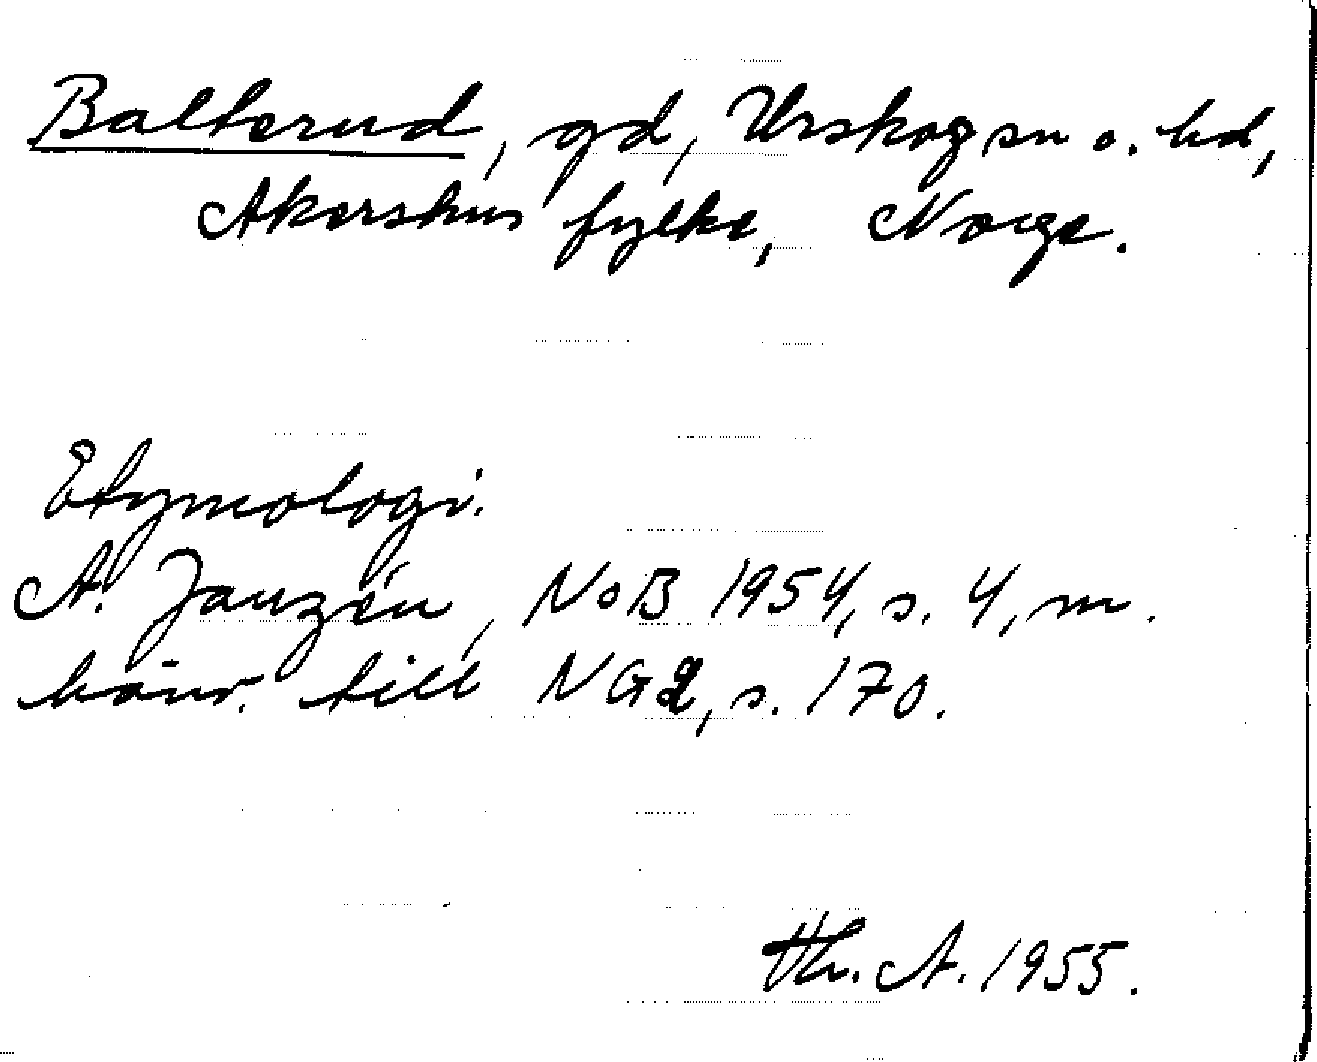 Balterud, gd, Urskog sn o. hd,
Akershus fylke, Norge.
Etymologi.
A. Janzén, NoB 1954, s. 4, m.
hänv. till NG2, s. 170.
Th. A. 1955.